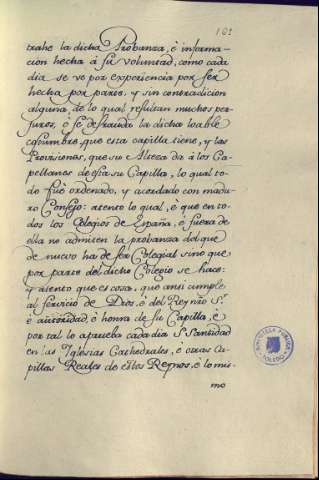 101
trahe la dicha Probanza, è informa-
cion hecha á su voluntad, como cada
dia se ve por experiencia por ser
hecha por parte, y sin contradicion
alguna, de lo qual resultan muchos per-
juros, è se defrauda la dicha loable
costumbre, que esta capilla tiene, y las
Provisiones, que su Alteza da á los Ca-
pellanes de esta su Capilla, lo qual to-
do fuè ordenado, y acordado con madu-
ro Consejo: atento lo qual, è que en to-
dos los Colegios de España, è fuera de
ella no admiten la probanza del que
de nuevo ha de ser Colegial sino que
por parte del dicho Colegio se hace:
y atento que es cosa, que ansi cumple
al servicio de Dios, è del Reyno Sr.
è autoridad, è honra de su Capilla, è
por tal lo aprueba cada dia S. Santidad
en las Yglesias Cathedrales, è otras Ca-
pillas Reales de estos Reynos, è lo mis-
mo
BIBLIOTECA PUBLICA
TOLEDO